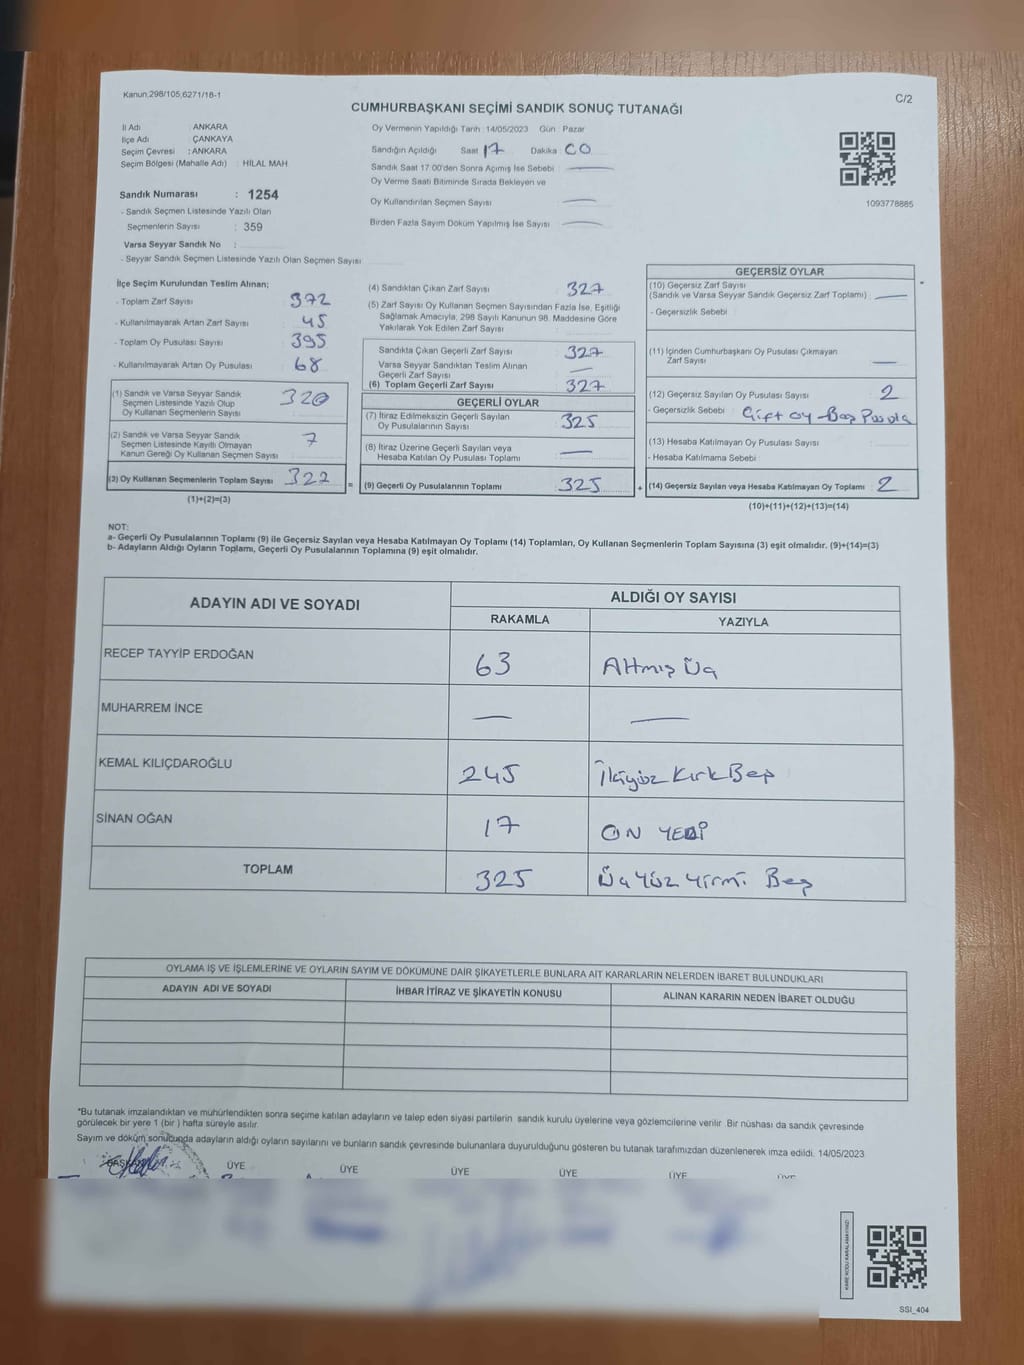 Kanun,298/105,6271/18-1
C/2
CUMHURBAŞKANI SEÇİMİ SANDIK SONUÇ TUTANAĞI
İl Adı : ANKARA
İlçe Adı : ÇANKAYA
Seçim Çevresi : ANKARA
Seçim Bölgesi (Mahalle Adı) : HİLAL MAH
Oy Vermenin Yapıldığı Tarih :14/05/2023 Gün : Pazar
Sandığın Açıldığı Saat 17 Dakika 00
Sandık Saat 17:00'den Sonra Açımış İse Sebebi :
Oy Verme Saati Bitiminde Sırada Bekleyen ve
Oy Kullandırılan Seçmen Sayısı :
Birden Fazla Sayım Döküm Yapılmış İse Sayısı :
1093778885
Sandık Numarası : 1254
- Sandık Seçmen Listesinde Yazılı Olan
Seçmenlerin Sayısı : 359
Varsa Seyyar Sandık No :
- Seyyar Sandık Seçmen Listesinde Yazılı Olan Seçmen Sayısı
İlçe Seçim Kurulundan Teslim Alınan;
- Toplam Zarf Sayısı : 372
- Kullanılmayarak Artan Zarf Sayısı : 45
- Toplam Oy Pusulası Sayısı : 395
- Kullanılmayarak Artan Oy Pusulası : 68
(1) Sandık ve Varsa Seyyar Sandık
Seçmen Listesinde Yazılı Olup
Oy Kullanan Seçmenlerin Sayısı : 320
(2) Sandık ve Varsa Seyyar Sandık
Seçmen Listesinde Kayıtlı Olmayan
Kanun Gereği Oy Kullanan Seçmen Sayısı : 7
(3) Oy Kullanan Seçmenlerin Toplam Sayısı : 327 =
(1)+(2)=(3)
(4) Sandıktan Çıkan Zarf Sayısı : 327
(5) Zarf Sayısı Oy Kullanan Seçmen Sayısından Fazla İse, Eşitliği
Sağlamak Amacıyla; 298 Sayılı Kanunun 98. Maddesine Göre
Yakılarak Yok Edilen Zarf Sayısı :
Sandıkta Çıkan Geçerli Zarf Sayısı : 327
Varsa Seyyar Sandıktan Teslim Alınan
Geçerli Zarf Sayısı :
(6) Toplam Geçerli Zarf Sayısı : 327
GEÇERLİ OYLAR
(7) İtiraz Edilmeksizin Geçerli Sayılan
Oy Pusulalarının Sayısı : 325
(8) İtiraz Üzerine Geçerli Sayılan veya
Hesaba Katılan Oy Pusulası Toplamı :
(9) Geçerli Oy Pusulalarının Toplamı : 325 +
GEÇERSİZ OYLAR
(10) Geçersiz Zarf Sayısı
(Sandık ve Varsa Seyyar Sandık Geçersiz Zarf Toplamı) :
- Geçersizlik Sebebi :
(11) İçinden Cumhurbaşkanı Oy Pusulası Çıkmayan
Zarf Sayısı :
(12) Geçersiz Sayılan Oy Pusulası Sayısı : 2
- Geçersizlik Sebebi : Çift oy - Boş Pusula
(13) Hesaba Katılmayan Oy Pusulası Sayısı :
- Hesaba Katılmama Sebebi :
(14) Geçersiz Sayılan veya Hesaba Katılmayan Oy Toplamı : 2
(10)+(11)+(12)+(13)=(14)
NOT:
a- Geçerli Oy Pusulalarının Toplamı (9) ile Geçersiz Sayılan veya Hesaba Katılmayan Oy Toplamı (14) Toplamları, Oy Kullanan Seçmenlerin Toplam Sayısına (3) eşit olmalıdır. (9)+(14)=(3)
b- Adayların Aldığı Oyların Toplamı, Geçerli Oy Pusulalarının Toplamına (9) eşit olmalıdır.
ADAYIN ADI VE SOYADI
ALDIĞI OY SAYISI
RAKAMLA YAZIYLA
RECEP TAYYİP ERDOĞAN 63 Altmış Üç
MUHARREM İNCE
KEMAL KILIÇDAROĞLU 245 İkiyüz Kırk Beş
SİNAN OĞAN 17 ON YEDİ
TOPLAM 325 Üç Yüz Yirmi Beş
OYLAMA İŞ VE İŞLEMLERİNE VE OYLARIN SAYIM VE DÖKÜMÜNE DAİR ŞİKAYETLERLE BUNLARA AİT KARARLARIN NELERDEN İBARET BULUNDUKLARI
ADAYIN ADI VE SOYADI İHBAR İTİRAZ VE ŞİKAYETİN KONUSU ALINAN KARARIN NEDEN İBARET OLDUĞU
*Bu tutanak imzalandıktan ve mühürlendikten sonra seçime katılan adayların ve talep eden siyasi partilerin sandık kurulu üyelerine veya gözlemcilerine verilir. Bir nüshası da sandık çevresinde
görülecek bir yere 1 (bir ) hafta süreyle asılır.
Sayım ve döküm sonucunda adayların aldığı oyların sayılarını ve bunların sandık çevresinde bulunanlara duyurulduğunu gösteren bu tutanak tarafımızdan düzenlenerek imza edildi. 14/05/2023
BAŞKAN ÜYE ÜYE ÜYE ÜYE ÜYE ÜYE
KARE KODU KARALAMAYINIZ!
SSI_404